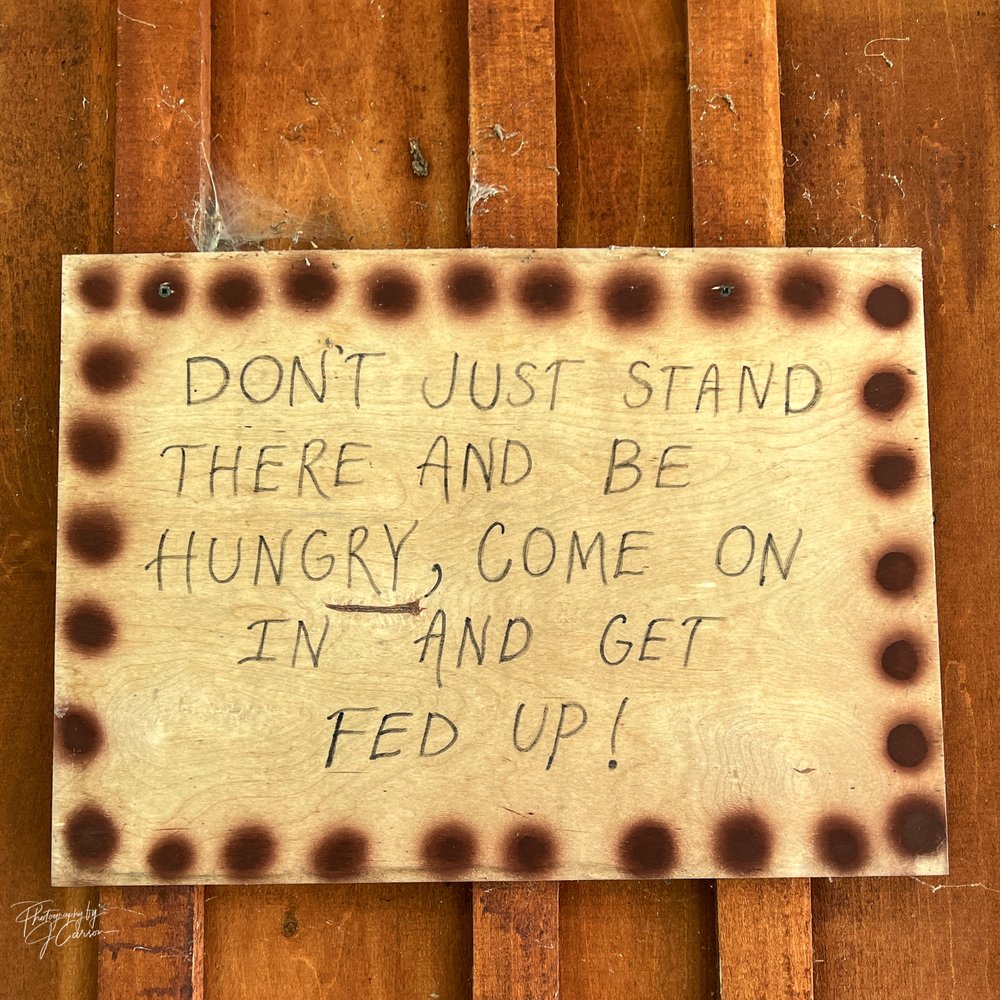 DON'T JUST STAND
THERE AND BE
HUNGRY, COME ON
IN AND GET
FED UP!
Photography by
J Carson